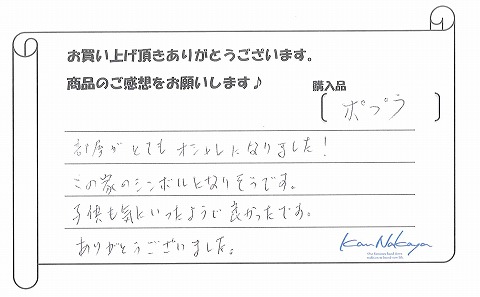 お買い上げ頂きありがとうございます。
商品のご感想をお願いします♪
購入品
ポプラ
部屋がとてもオシャレになりました!
この家のシンボルとなりそうです。
子供も気にいったようで良かったです。
ありがとうございました。
Kan Nakaya